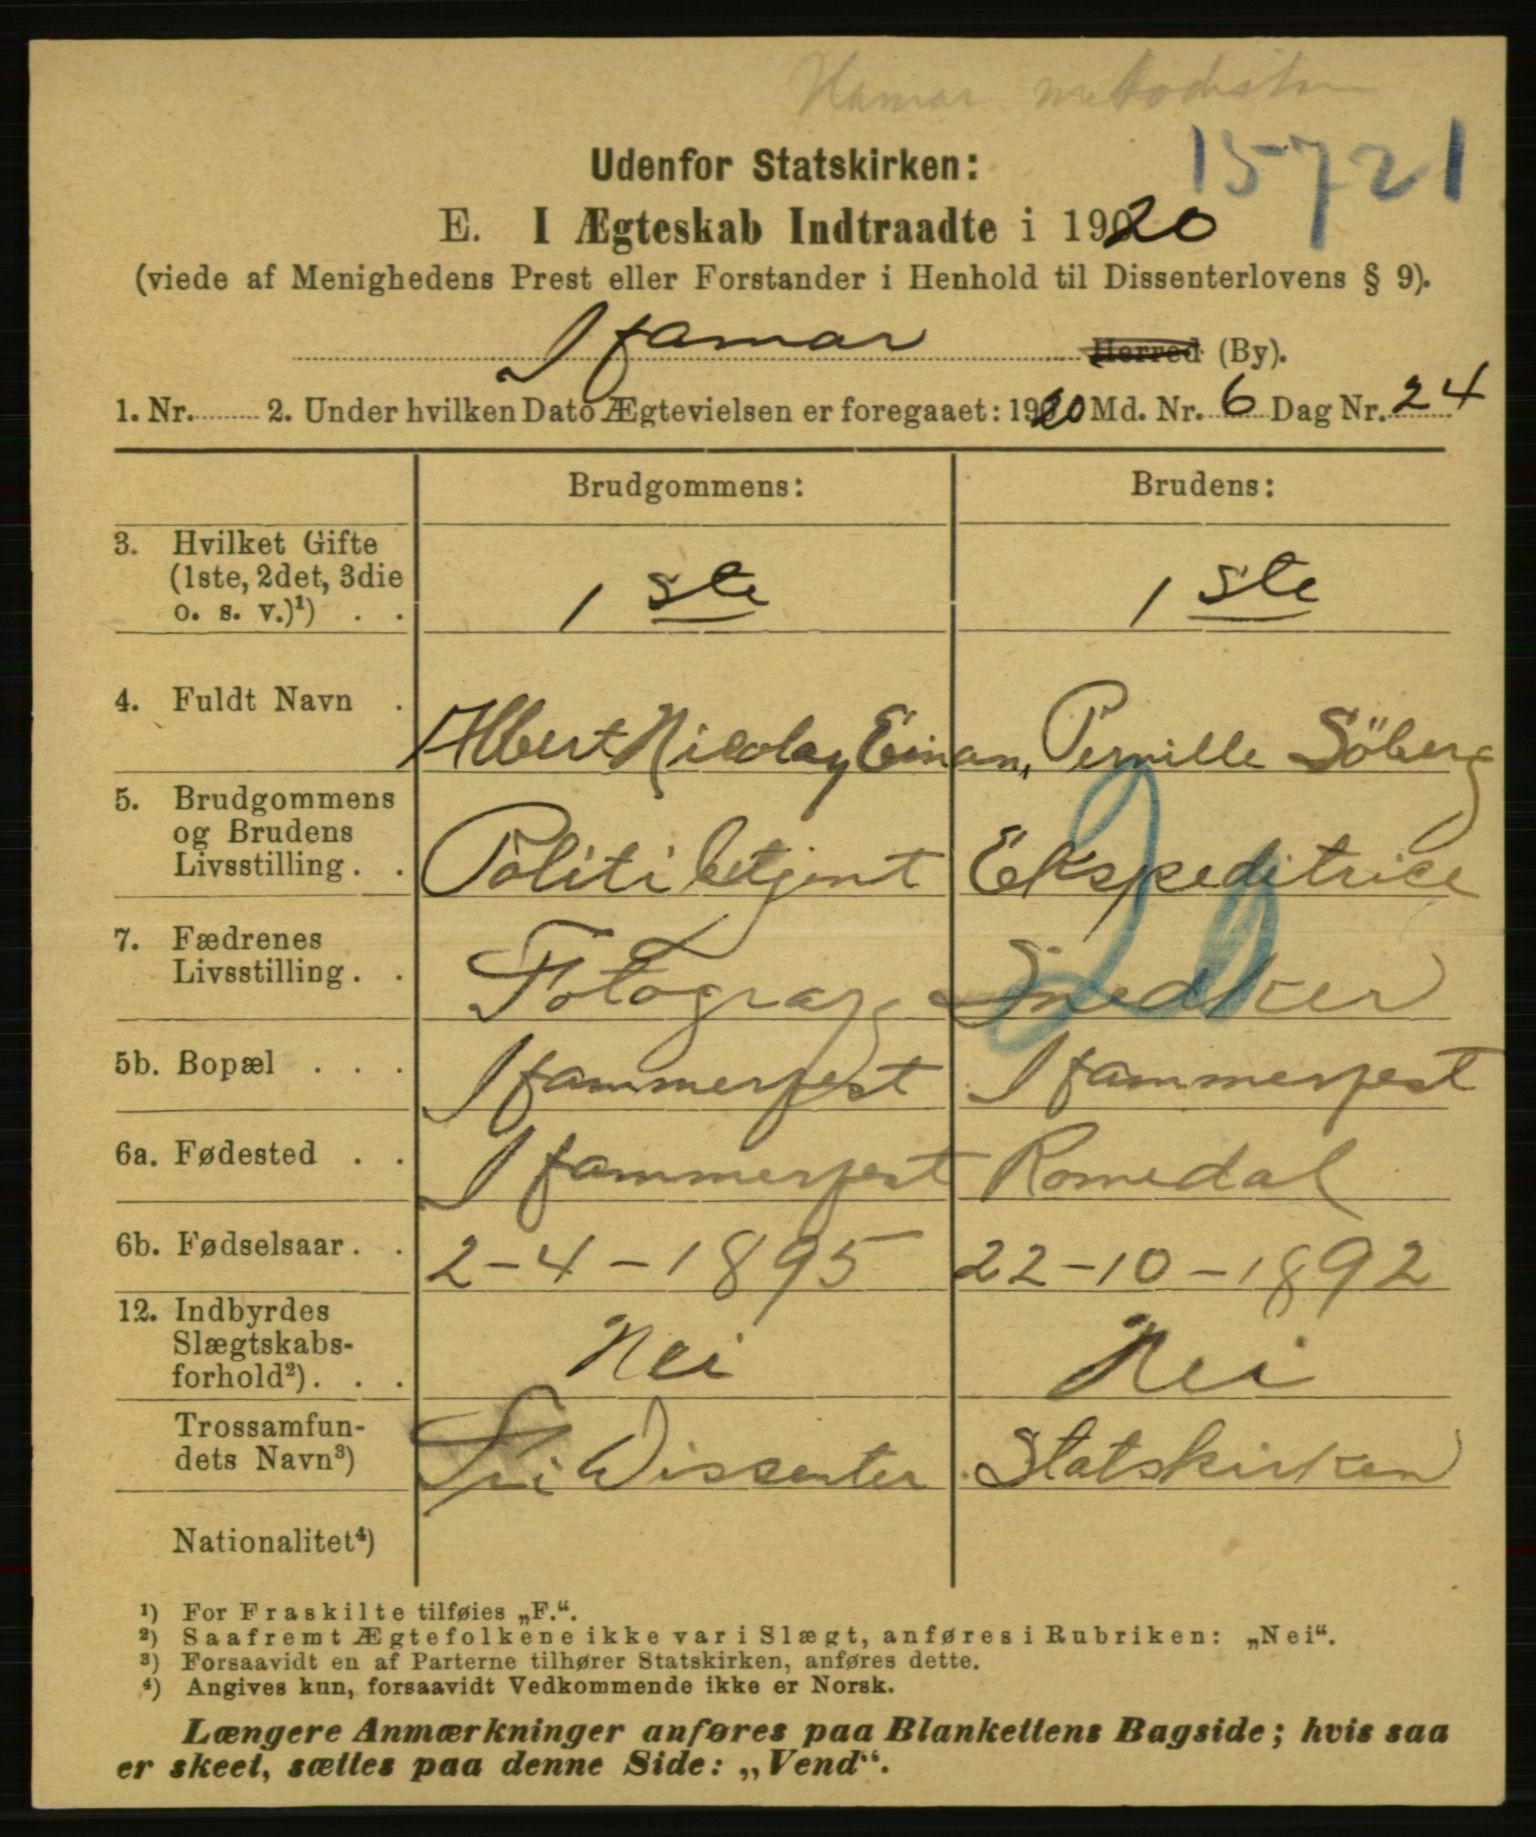 Hamar metodistm
15721
Udenfor Statskirken:
E. I Ægteskab Indtraadte i 19020
(viede af Menighedens Prest eller Forstander i Henhold til Dissenterlovens § 9).
Hamar Herred (By).
1. Nr. 2. Under hvilken Dato Ægtevielsen er foregaaet: 1920 Md. Nr. 6 Dag Nr. 24
Brudgommens: Brudens:
3. Hvilket Gifte
(1ste, 2det, 3die
o. s. v.)¹) . . 1 ste 1 ste
4. Fuldt Navn . Albert Nicolay Einan, Pernille Söberg
5. Brudgommens
og Brudens
Livsstilling . . Politibetjent Ekspeditrice
7. Fædrenes
Livsstilling . . Fotograf Snedker
5b. Bopæl . . . Hammerfest Hammerfest
6a. Fødested . . Hammerfest Romedal
6b. Fødselsaar . . 2-4-1895 22-10-1892
12. Indbyrdes
Slægtskabs-
forhold²) . . . Nei Nei
Trossamfun-
dets Navn³) Fri Dissenter Statskirken
Nationalitet⁴)
¹) For Fraskilte tilføies „F.“.
²) Saafremt Ægtefolkene ikke var i Slægt, anføres i Rubriken: „Nei“.
³) Forsaavidt en af Parterne tilhører Statskirken, anføres dette.
⁴) Angives kun, forsaavidt Vedkommende ikke er Norsk.
Længere Anmærkninger anføres paa Blankettens Bagside; hvis saa
er skeet, sættes paa denne Side: „Vend“.